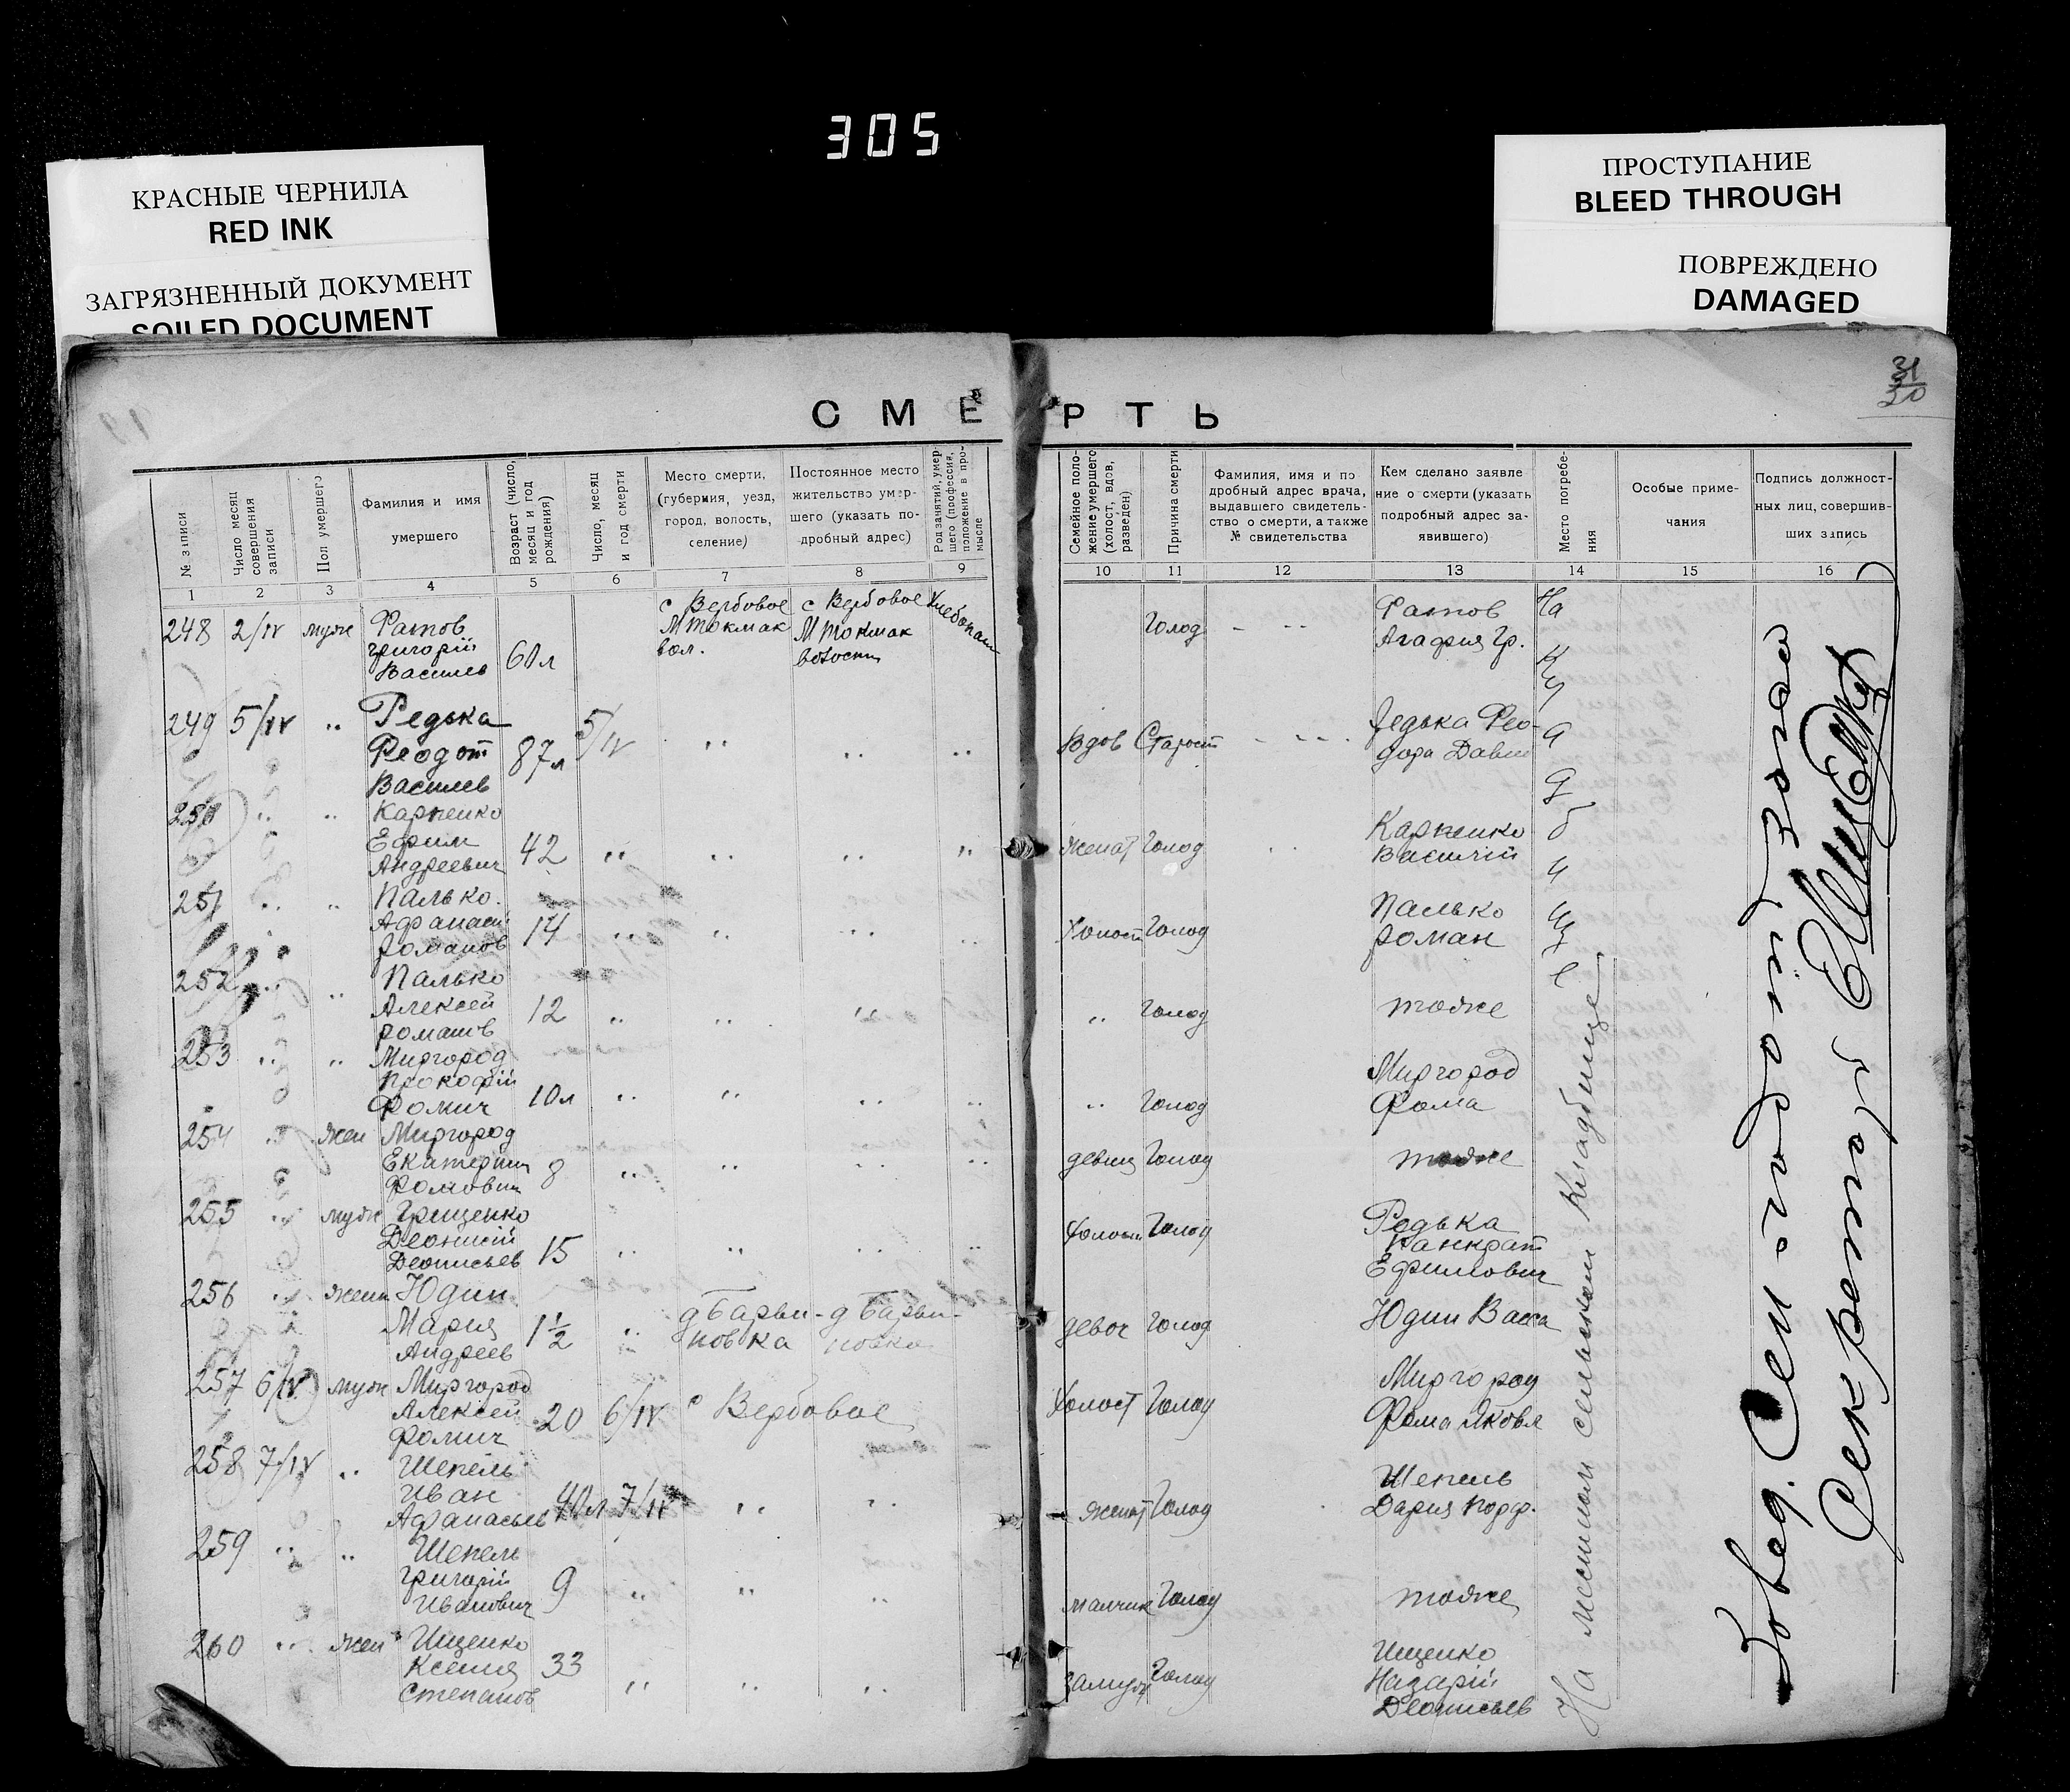 305
КРАСНЫЕ ЧЕРНИЛА
RED INK
ЗАГРЯЗНЕННЫЙ ДОКУМЕНТ
SOILED DOCUMENT
ПРОСТУПАНИЕ
BLEED THROUGH
ПОВРЕЖДЕНО
DAMAGED
31
30
СМЕРТЬ
№ записи
Число месяц совершения записи
Пол умершего
Фамилия и имя умершего
Возраст (число, месяц и год рождения)
Число, месяц и год смерти
Место смерти, (губерния, уезд, город, волость, селение)
Постоянное место жительство умершего (указать подробный адрес)
Род занятий, умершего (профессия, положение в промысле
Семейное положение умершего (холост, вдов, разведен)
Причина смерти
Фамилия, имя и подробный адрес врача, выдавшего свидетельство о смерти, а также № свидетельства
Кем сделано заявление о смерти (указать подробный адрес заявившего)
Место погребения
Особые примечания
Подпись должностных лиц, совершивших запись
1 2 3 4 5 6 7 8 9 10 11 12 13 14 15 16
248 2/IV муж Фатов Григорій Васильев 60л с Вербовое М Токмак вол. с Вербовое М Токмак волости Голод Фатов Агафия Гр.
249 5/IV " Редька Феодот Васильев 87л 5/IV " " " Вдов Старост Редька Фео-
дора
250 " " Карпенко Ефим Андреевич 42 " " " " женат Голод Карпенко Василій
251 " " Палько Афанасій Романов 14 " " " " Холост Голод Палько Роман
252 " " Палько Алексей Романов 12 " " " " Голод тоже
253 " " Миргород Прокофій Фомич 10л " " " " " Голод Миргород Фома
254 " жен Миргород Екатерина Фомовна 8 " " " " девиц Голод тоже
255 " муж Грищенко Деонисій Деонисьев 15 " " " " Холост Голод Редька Панкрат Ефимович
256 " жени Юдин Мария Андреев 1½ " д Барви-
новка д Барви-
новка девоч Голод Юдин Васса
257 6/IV муж Миргород Алексей Фомич 20 6/IV с Вербовое Холост Голод Миргород Фома Яковл
258 7/IV " Шепель Иван Афанасьев 40л 7/IV " " женат Голод Шепель Дария Порф.
259 " " Шепель Григорій Иванович 9 " " " малчик Голод тоже
260 " жен Ищенко Ксения Степанов 33 " " " Замуж Голод Ищенко Назарій Деонисьев
На местном сельском кладбище
Секретар